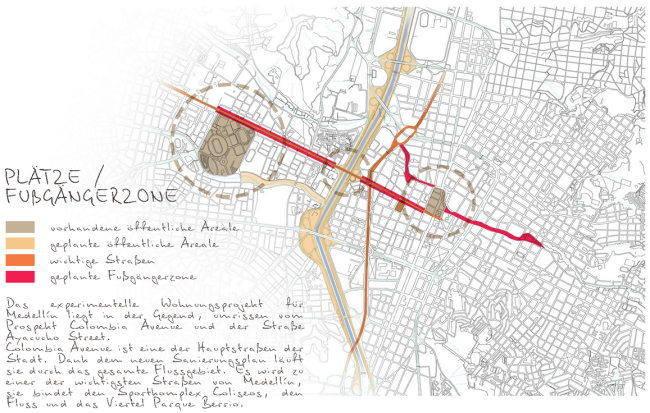 PLÄTZE /
FUßGÄNGERZONE
vorhandene öffentliche Areale
geplante öffentliche Areale
wichtige Straßen
geplante Fußgängerzone
Das experimentelle Wohnungsprojekt für
Medellín liegt in der Gegend, umrissen vom
Prospekt Colombia Avenue und der Straße
Ayacucho Street.
Colombia Avenue ist eine der Hauptstraßen der
Stadt. Dank dem neuen Sanierungsplan läuft
sie durch das gesamte Flussgebiet. Es wird zu
einer der wichtigsten Straßen von Medellín,
sie bindet den Sportkomplex Coliseos, den
Fluss und das Viertel Parque Berrio.